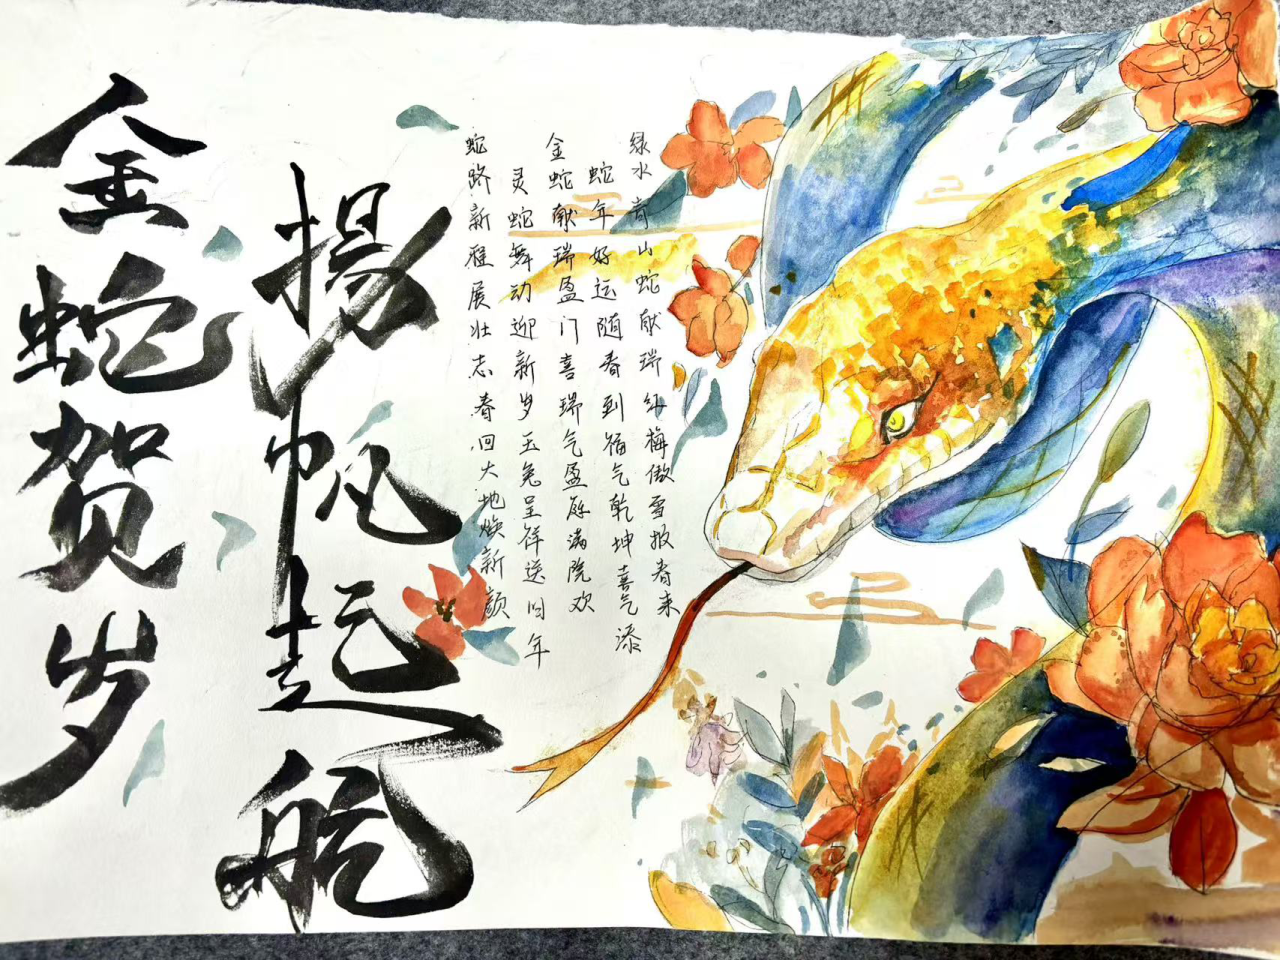 绿水青山蛇献瑞红梅傲雪报春来
蛇年好运随春到福气乾坤喜气添
金蛇献瑞盈门喜瑞气盈庭满院欢
灵蛇舞动迎新岁玉兔呈祥送旧年
蛇路新展壮志春回大地焕新颜
揚帆起航
金蛇贺岁